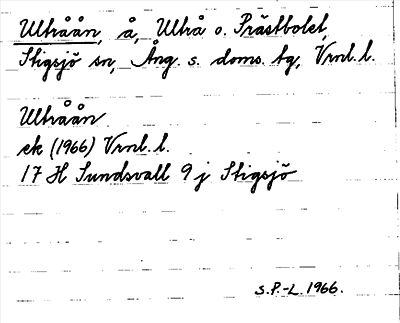 Ultråån, å, Ultrå o. Prästbolet,
Stigsjö sn, Ång. s. doms. tg, Vrnl. l.
Ultråån
ek (1966) Vrnl. l.
17 H Sundsvall 9 j Stigsjö
S.P.-L. 1966.